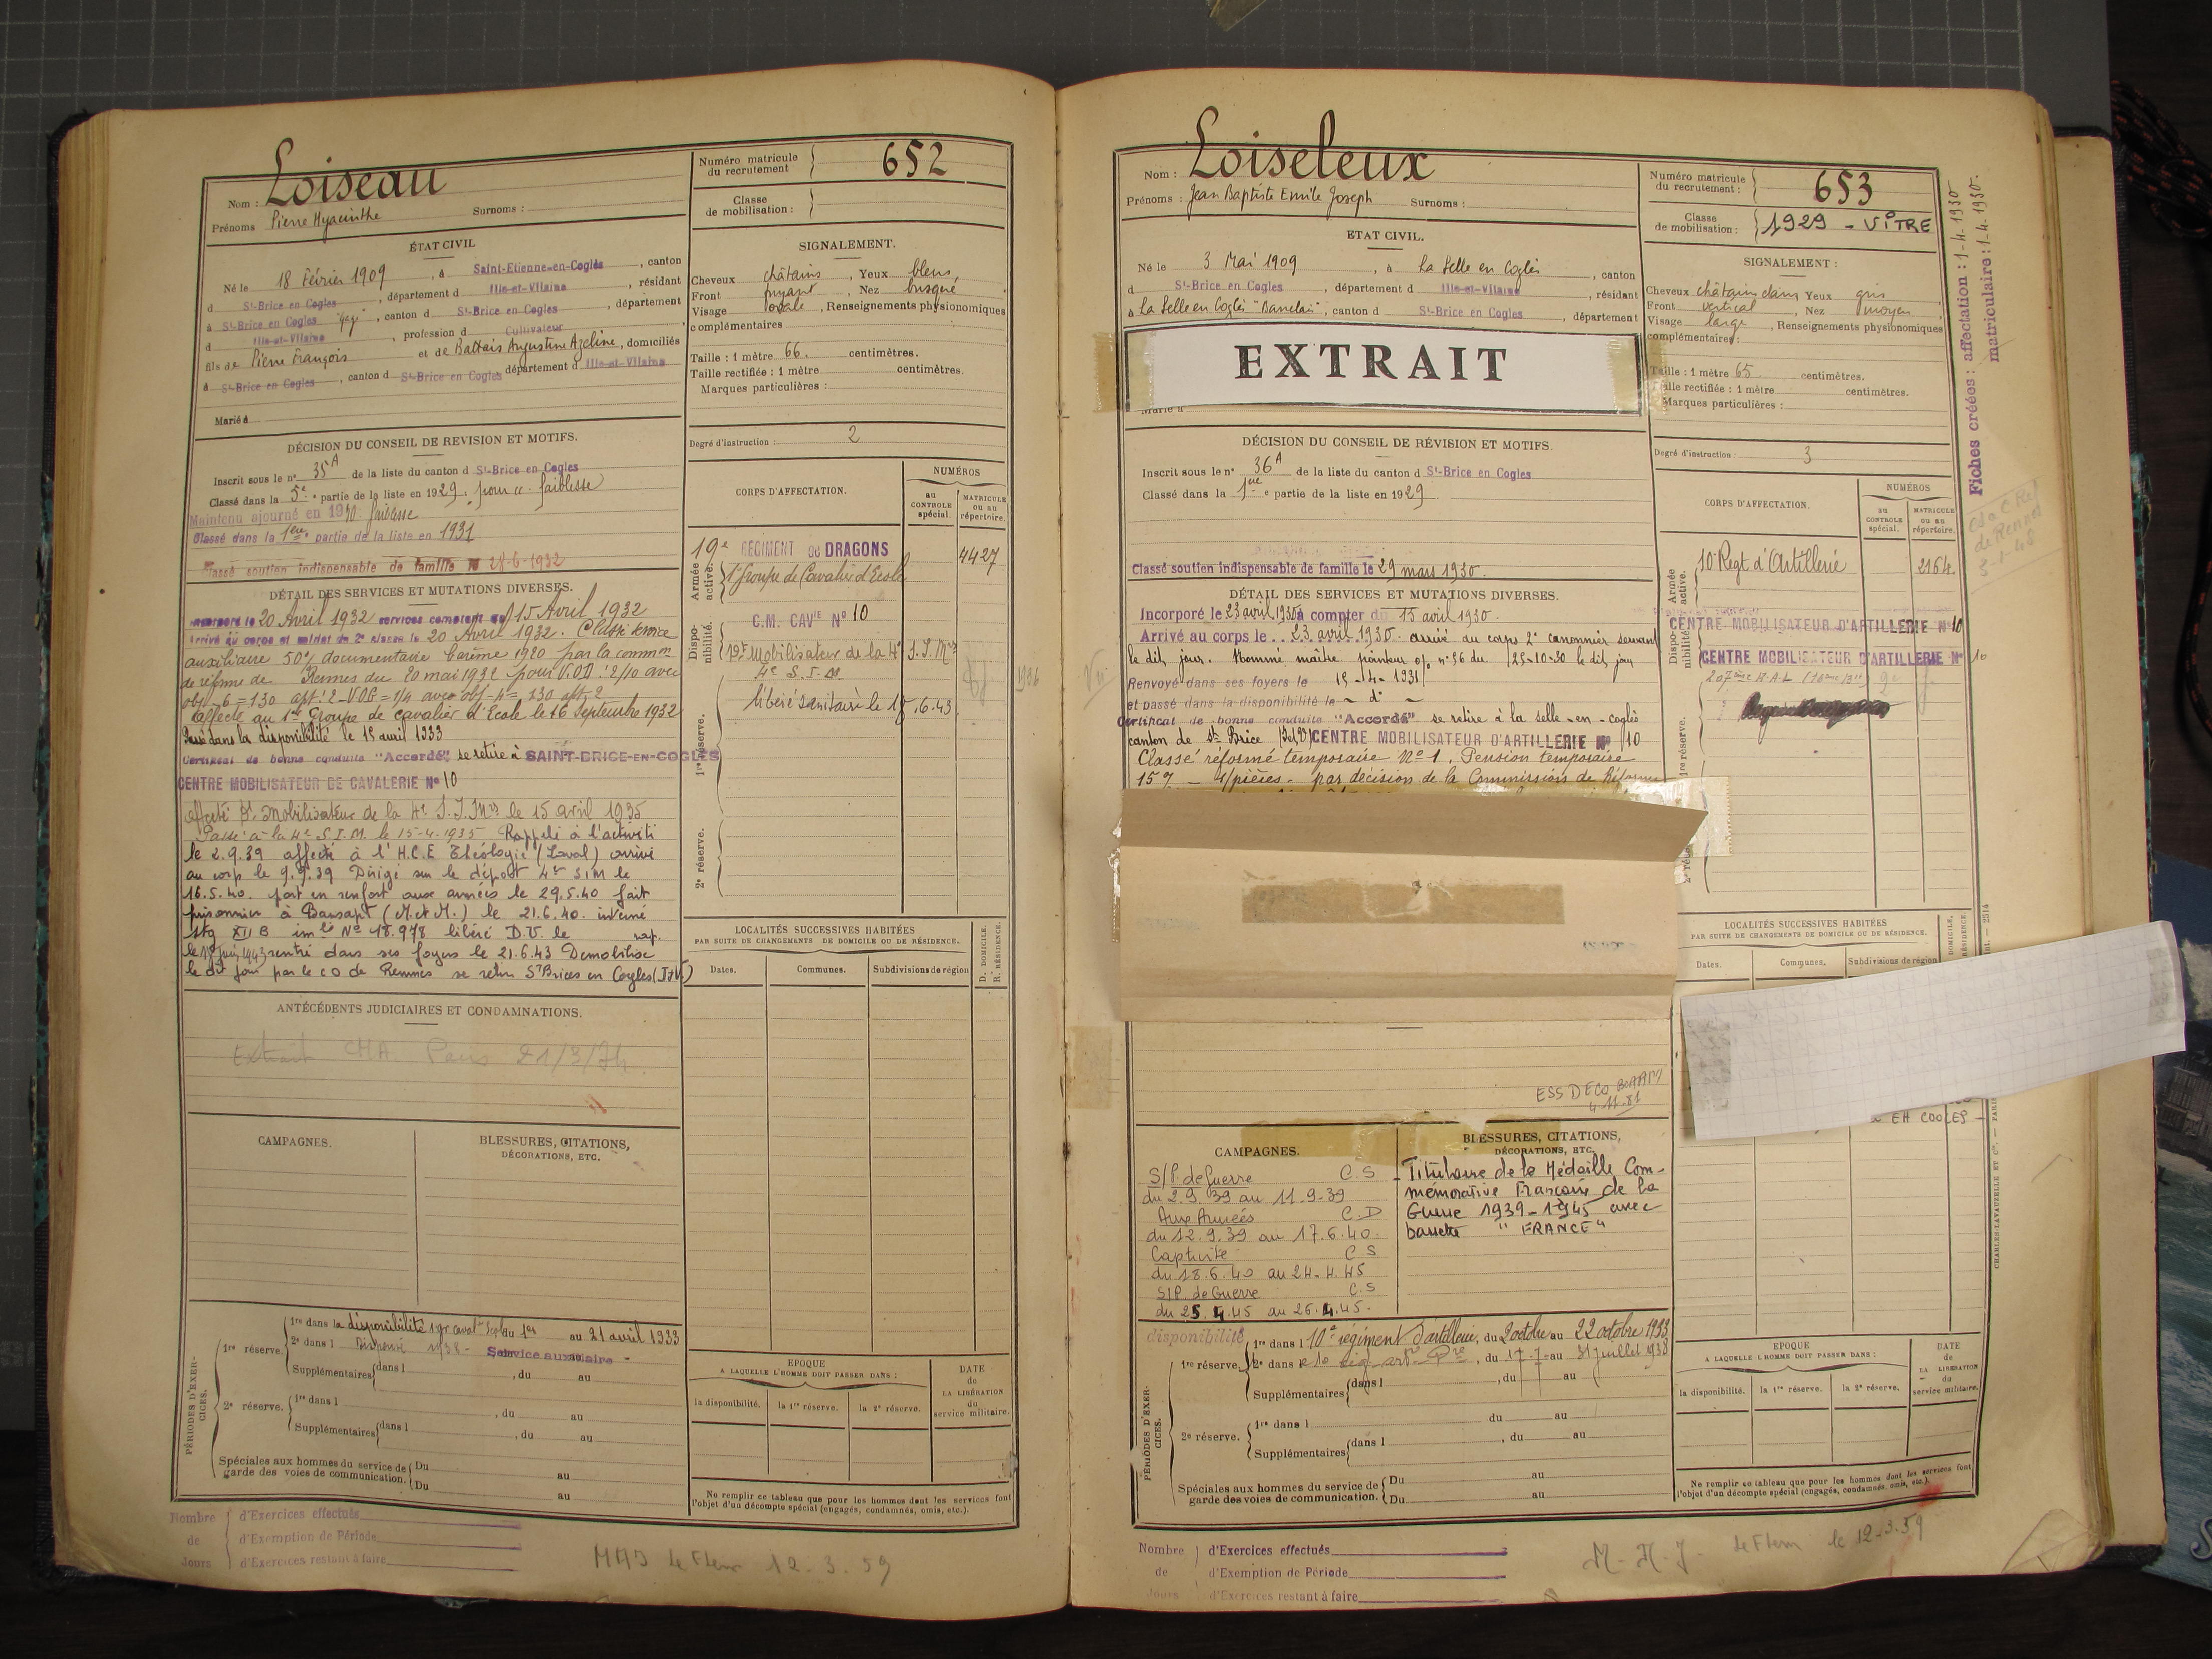 Loiseau
Nom :
Prénoms Pierre Hyacinthe Surnoms :
Numéro matricule du recrutement 652
Classe de mobilisation :
ÉTAT CIVIL
Né le 18 Février 1909, à Saint-Etienne-en-Coglès, canton
d St-Brice en Cogles, département d Ille-et-Vilaine, résidant
à St-Brice en Cogles, canton d St-Brice en Cogles, département
d Ille-et-Vilaine, profession d Cultivateur
fils de Pierre François et de Battais Augustine Azeline, domiciliés
à St-Brice en Cogles, canton d St-Brice en Cogles département d Ille-et-Vilaine
Marié à
SIGNALEMENT.
Cheveux châtains, Yeux bleus,
Front fuyant, Nez busqué
Visage ovale, Renseignements physionomiques
complémentaires
Taille : 1 mètre 66. centimètres.
Taille rectifiée : 1 mètre centimètres.
Marques particulières :
Degré d'instruction : 2
DÉCISION DU CONSEIL DE REVISION ET MOTIFS.
Inscrit sous le n° 35A de la liste du canton d St-Brice en Cogles
Classé dans la 5e partie de la liste en 1929. pour faiblesse
Maintenu ajourné en 1930 faiblesse
Classé dans la 1ère partie de la liste en 1931
Classé soutien indispensable de famille le 28-6-1932
DÉTAIL DES SERVICES ET MUTATIONS DIVERSES.
Incorporé le 20 Avril 1932 services comptant du 15 Avril 1932
Arrivé au corps et soldat de 2e classe le 20 Avril 1932. Classé service
auxiliaire 50% documentaire barème 1920 par la common
de réforme de Rennes du 20 mai 1932 pour V.O.D : 2/10 avec
obj - 6 = 130 apt. 2 - VOG = 1/4 avec obj - 4 = 130 apt. 2
affecté au 1er Groupe de cavalier d'Ecole le 16 septembre 1932
Passé dans la disponibilité le 15 avril 1933
Certificat de bonne conduite "Accordé", se retire à SAINT-BRICE-EN-COGLES
CENTRE MOBILISATEUR DE CAVALERIE N° 10
affecté Dt. Mobilisateur de la 4e S.I.Mres le 15 avril 1935
Passé à la 4e S.I.M. le 15-4-1935 Rappelé à l'activité
le 2.9.39 affecté à l'H.C.E Théologie (Laval) arrivé
au corp le 9.9.39 Dirigé sur le dépost 4e SIM le
16.5.40. part en renfort aux armées le 29.5.40 fait
prisonnier à Bansapt (M.et M.) le 21.6.40. interné
Stg XII B imle N° 18.978 libéré D.V. le rap.
le 18 juin 1943 rentré dans ses foyers le 21.6.43 Demobilisé
le dit jour par le CO de Rennes se retire St Brices en Cogles (I&V)
CORPS D'AFFECTATION.
NUMÉROS
au CONTROLE spécial.
MATRICULE ou au répertoire.
Armée active.
19e REGIMENT de DRAGONS 4427
1er Groupe de Cavalier d'Ecole
Disponibilité.
C.M. CAVIE N° 10
Dt Mobilisateur de la 4e S.I.Mres
4e S.I.M
libéré sanitaire le 18.6.43
1re réserve.
2e réserve.
LOCALITÉS SUCCESSIVES HABITÉES
PAR SUITE DE CHANGEMENTS DE DOMICILE OU DE RÉSIDENCE.
Dates. Communes. Subdivisions de région
D. DOMICILE.
R. RÉSIDENCE.
ANTÉCÉDENTS JUDICIAIRES ET CONDAMNATIONS.
Extrait CHA Paris 21/3/74.
CAMPAGNES.
BLESSURES, CITATIONS,
DÉCORATIONS, ETC.
PÉRIODES D'EXERCICES.
1re réserve. 1re dans la disponibilité 1 gr caval Ecole du 1er au 21 avril 1933
2e dans l Dispensé 1938 - Service auxiliaire -
Supplémentaires dans l , du au
2e réserve. 1re dans l , du au
Supplémentaires dans l , du au
Spéciales aux hommes du service de garde des voies de communication. Du au
Du au
EPOQUE
A LAQUELLE L'HOMME DOIT PASSER DANS :
la disponibilité. la 1re réserve. la 2e réserve.
DATE de LA LIBÉRATION du service militaire.
Ne remplir ce tableau que pour les hommes dont les services font
l'objet d'un décompte spécial (engagés, condamnés, omis, etc.).
Nombre de Jours
d'Exercices effectués
d'Exemption de Période
d'Exercices restant à faire
12.3.59
Loiseleux
Nom :
Prénoms : Jean Baptiste Emile Joseph Surnoms :
Numéro matricule du recrutement : 653
Classe de mobilisation : 1929 - VITRE
ETAT CIVIL.
Né le 3 Mai 1909, à La Selle en Coglès, canton
d St-Brice en Cogles, département d Ille-et-Vilaine, résidant
à La Selle en Coglès, canton d St-Brice en Cogles, département
EXTRAIT
Marié à
SIGNALEMENT :
Cheveux châtain clairs Yeux gris
Front vertical, Nez moyen
Visage large, Renseignements physionomiques
complémentaires :
Taille : 1 mètre 65 centimètres.
Taille rectifiée : 1 mètre centimètres.
Marques particulières :
Degré d'instruction : 3
Fiches créées : affectation : 1-4-1930
matriculaire : 1-4-1930.
de Rennes
3-1-48
DÉCISION DU CONSEIL DE RÉVISION ET MOTIFS.
Inscrit sous le n° 36A de la liste du canton d St-Brice en Cogles
Classé dans la 1ère partie de la liste en 1929
Classé soutien indispensable de famille le 29 mars 1930.
DÉTAIL DES SERVICES ET MUTATIONS DIVERSES.
Incorporé le 23 avril 1930 à compter du 15 avril 1930.
Arrivé au corps le .. 23 avril 1930. arrivé au corps 2e canonnier servant
le dit jour. Nommé maître pointeur o/ n° 56 du 25-10-30 le dit jour
Renvoyé dans ses foyers le 15-4-1931
et passé dans la disponibilité le - d° -
Certificat de bonne conduite "Accordé" se retire à la selle-en-coglès
canton de St Brice (I&V) CENTRE MOBILISATEUR D'ARTILLERIE N° 10
Classé réformé temporaire N° 1. Pension temporaire
15% - par décision de la Commission de Réforme
CORPS D'AFFECTATION.
NUMÉROS
au CONTROLE spécial.
MATRICULE ou au répertoire.
Armée active.
10e Regt d'Artillerie 2164.
Disponibilité.
CENTRE MOBILISATEUR D'ARTILLERIE N° 10
CENTRE MOBILISATEUR D'ARTILLERIE N° 10
1re réserve.
LOCALITÉS SUCCESSIVES HABITÉES
PAR SUITE DE CHANGEMENTS DE DOMICILE OU DE RÉSIDENCE.
Dates. Communes. Subdivisions de région
EN COGLES -
4.11.81
CAMPAGNES.
S/P. de Guerre C.S
du 2.9.39 au 11.9.39
Aux Armées C.D
du 12.9.39 au 17.6.40.
Captivité C S
du 18.6.40 au 24.4.45
S/P. de Guerre C.S
du 25.4.45 au 26.4.45.
BLESSURES, CITATIONS,
DÉCORATIONS, ETC.
Titulaire de la Médaille Com-
mémorative Française de la
Guerre 1939-1945 avec
barrette "FRANCE"
PÉRIODES D'EXERCICES.
disponibilité 1re dans l 10e régiment d'artillerie, du 2 octobre au 22 octobre 1933
1re réserve. 2e dans le 10 rég. art., du 17-7 au 31 juillet 1938
Supplémentaires dans l , du au
2e réserve. 1re dans l du au
Supplémentaires dans l , du au
Spéciales aux hommes du service de garde des voies de communication. Du au
Du au
EPOQUE
A LAQUELLE L'HOMME DOIT PASSER DANS :
la disponibilité. la 1re réserve. la 2e réserve.
DATE de LA LIBÉRATION du service militaire.
Ne remplir ce tableau que pour les hommes dont les services font
l'objet d'un décompte spécial (engagés, condamnés, omis, etc.).
CHARLES-LAVAUZELLE ET Cie. — PARIS
Nombre de Jours
d'Exercices effectués
d'Exemption de Période
d'Exercices restant à faire
le 12-3.59